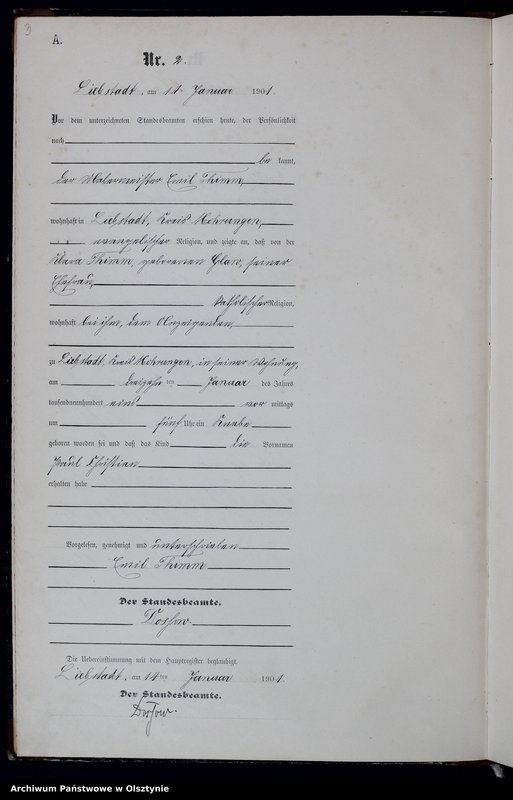 3
A.
Nr. 2.
Liebstadt, am 14. Januar 1901.
Vor dem unterzeichneten Standesbeamten erschien heute, der Persönlichkeit
nach
be kannt,
der Malermeister Emil Thimm,
wohnhaft in Liebstadt, Kreis Mohrungen,
evangelischer Religion, und zeigte an, daß von der
Clara Thimm, geborenen Glaw, seiner
Ehefrau,
katholischer Religion,
wohnhaft bei ihm, dem Anzeigenden,
zu Liebstadt, Kreis Mohrungen, in seiner Wohnung,
am dreizehn ten Januar des Jahres
tausendneunhundert eins vor mittags
um fünf Uhr ein Knabe
geboren worden sei und daß das Kind die Vornamen
Paul Christian
erhalten habe
Vorgelesen, genehmigt und unterschrieben
Emil Thimm
Der Standesbeamte.
Die Uebereinstimmung mit dem Hauptregister beglaubigt.
Liebstadt, am 14ten Januar 1901.
Der Standesbeamte.
Archiwum Państwowe w Olsztynie